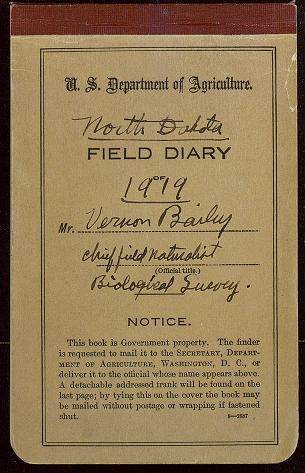 U. S. Department of Agriculture.
North Dakota
FIELD DIARY
OF
1919
Mr. Vernon Bailey
chief field naturalist
(Official title.)
Biological Survey.
NOTICE.
This book is Government property. The finder
is requested to mail it to the SECRETARY, DEPART-
MENT OF AGRICULTURE, WASHINGTON, D. C., or
deliver it to the official whose name appears above.
A detachable addressed frank will be found on the
last page; by tying this on the cover the book may
be mailed without postage or wrapping if fastened
shut.
8—2337